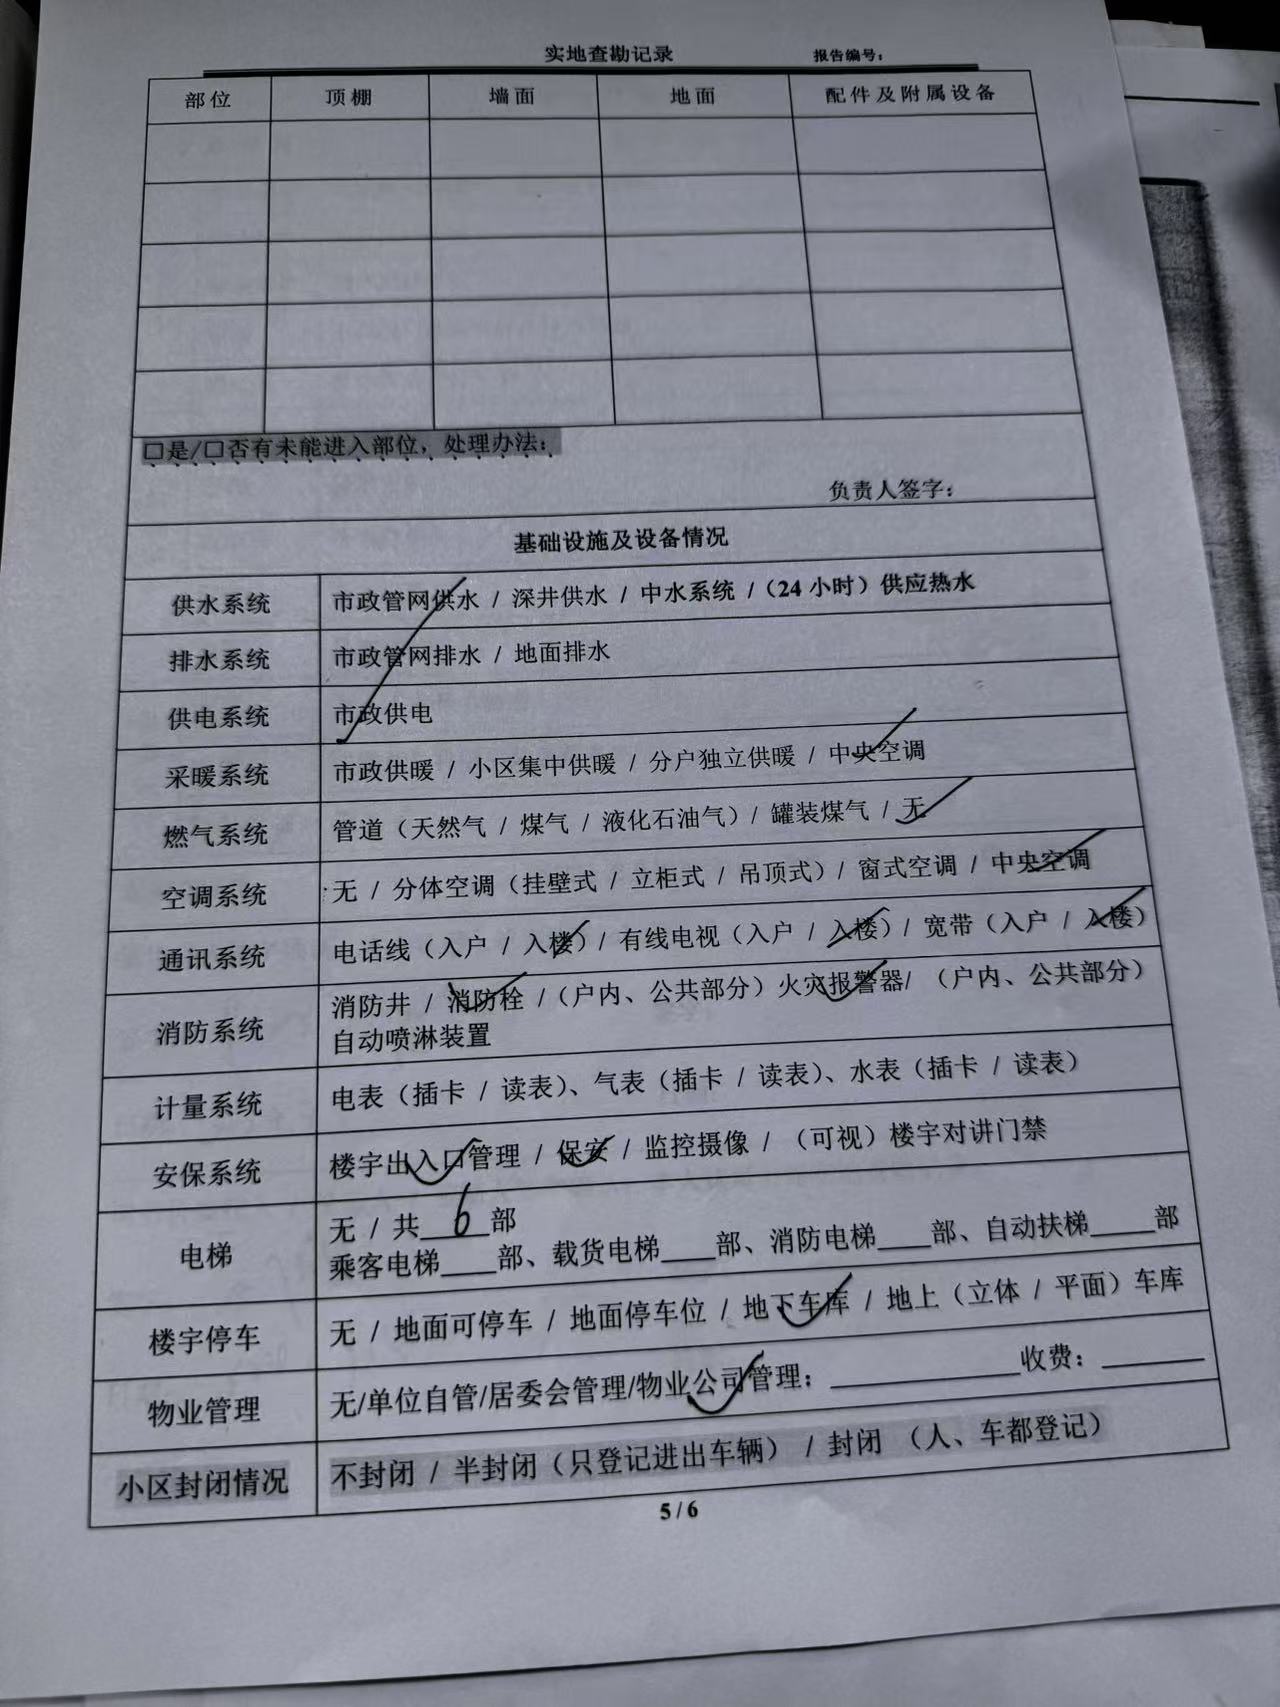 实地查勘记录 报告编号：
部位 顶棚 墙面 地面 配件及附属设备
□是/□否有未能进入部位，处理办法：
负责人签字：
基础设施及设备情况
供水系统 市政管网供水 / 深井供水 / 中水系统 /（24 小时）供应热水
排水系统 市政管网排水 / 地面排水
供电系统 市政供电
采暖系统 市政供暖 / 小区集中供暖 / 分户独立供暖 / 中央空调
燃气系统 管道（天然气 / 煤气 / 液化石油气）/ 罐装煤气 / 无
空调系统 无 / 分体空调（挂壁式 / 立柜式 / 吊顶式）/ 窗式空调 / 中央空调
通讯系统 电话线（入户 / 入楼）/ 有线电视（入户 / 入楼）/ 宽带（入户 / 入楼）
消防系统 消防井 / 消防栓 /（户内、公共部分）火灾报警器/ （户内、公共部分）
自动喷淋装置
计量系统 电表（插卡 / 读表）、气表（插卡 / 读表）、水表（插卡 / 读表）
安保系统 楼宇出入口管理 / 保安 / 监控摄像 / （可视）楼宇对讲门禁
电梯 无 / 共 6 部
乘客电梯____部、载货电梯____部、消防电梯____部、自动扶梯_____部
楼宇停车 无 / 地面可停车 / 地面停车位 / 地下车库 / 地上（立体 / 平面）车库
物业管理 无/单位自管/居委会管理/物业公司管理：______________收费：________
小区封闭情况 不封闭 / 半封闭（只登记进出车辆） / 封闭 （人、车都登记）
5 / 6